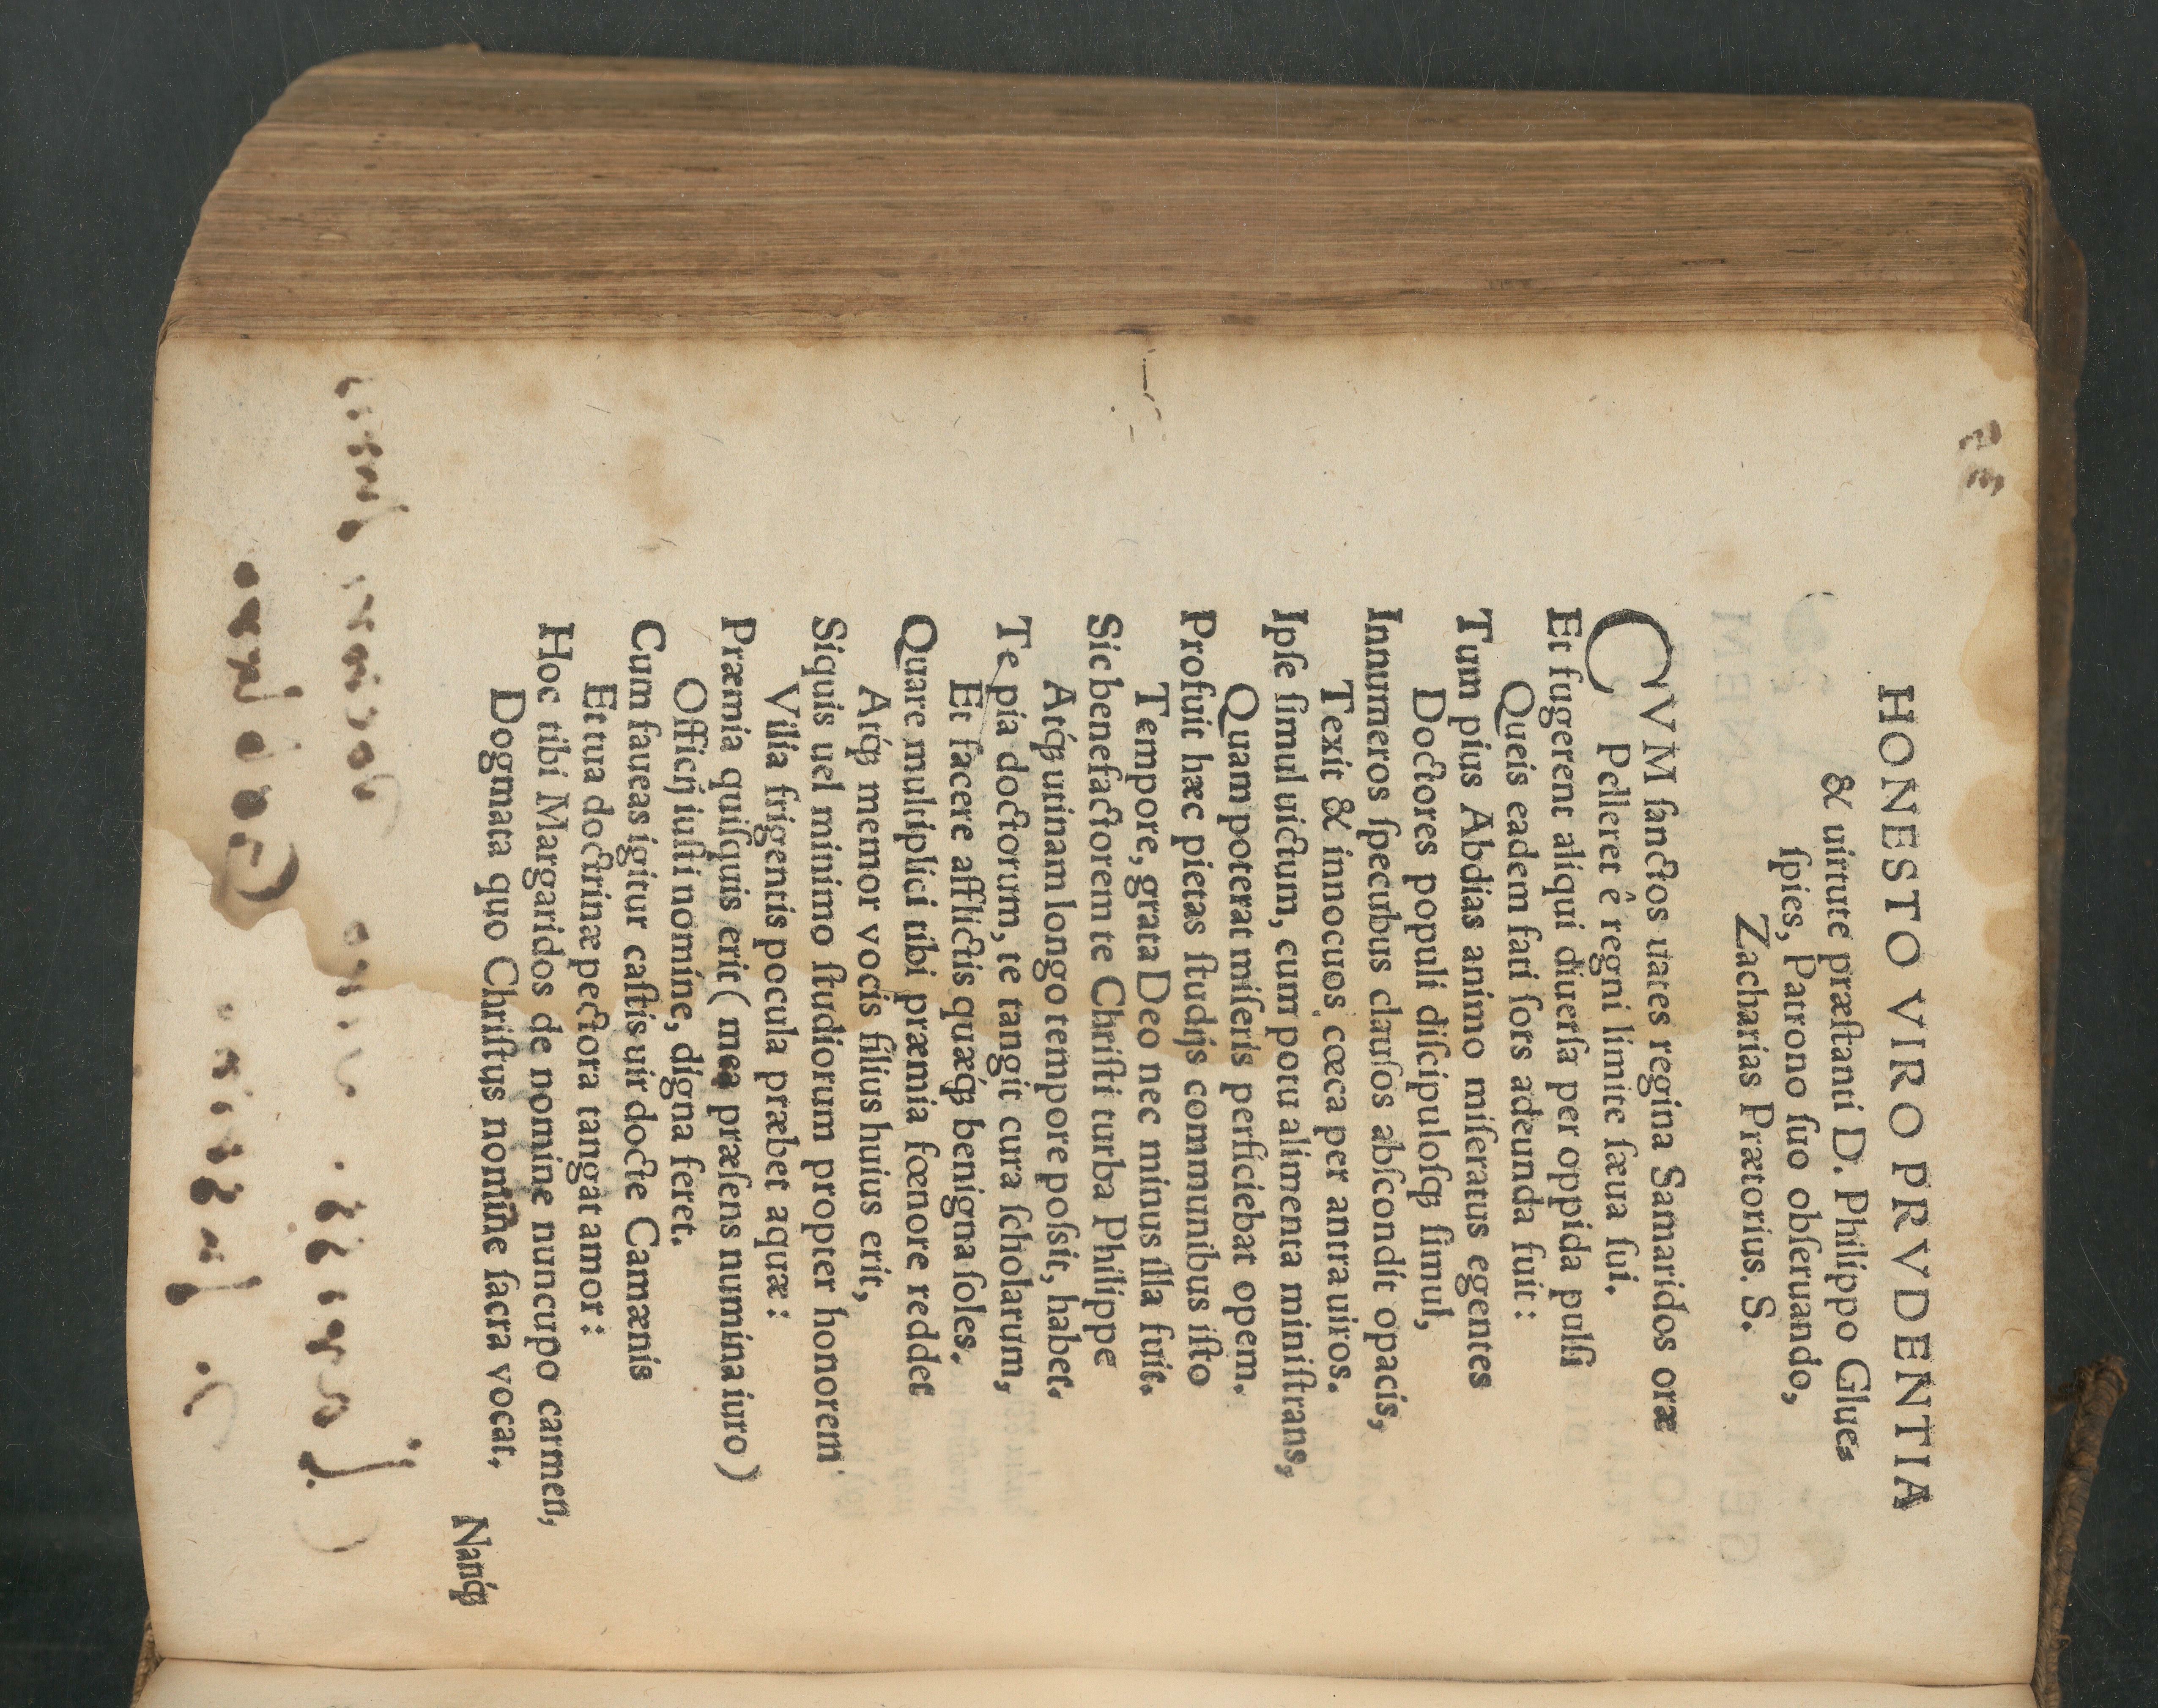 HONESTO VIRO PRVDENTIA
& uirtute præſtanti D. Philippo Glue⸗
ſpies, Patrono ſuo obſeruando,
Zacharias Prætorius. S.
CVM ſanctos uates regina Samaridos oræ
Pelleret ê regni limite ſæua ſui.
Et fugerent aliqui diuerſa per oppida pulſi
Queis eadem fari ſors adeunda fuit:
Tum pius Abdias animo miſeratus egentes
Doctores populi diſcipuloſq́; ſimul,
Innumeros ſpecubus clauſos abſcondit opacis,
Texit & innocuos cœca per antra uiros.
Ipſe ſimul uictum, cum potu alimenta miniſtrans,
Quam poterat miſeris perficiebat opem.
Profuit hæc pietas ſtudijs communibus iſto
Tempore, grata Deo nec minus illa fuit.
Sic benefactorem te Chriſti turba Philippe
Atq́; utinam longo tempore poſsit, habet.
Te pia doctorum, te tangit cura ſcholarum,
Et facere afflictis quæq́; benigna ſoles.
Quare multiplici tibi præmia fœnore reddet
Atq́; memor vocis filius huius erit,
Siquis uel minimo ſtudiorum propter honorem
Vilia frigentis pocula præbet aquæ:
Præmia quiſquis erit ( mea præſens numina iuro )
Officij iuſti nomine, digna feret.
Cum faueas igitur caſtis uir docte Camænis
Et tua doctrinæ pectora tangat amor:
Hoc tibi Margaridos de nomine nuncupo carmen,
Dogmata quo Chriſtus nomine ſacra vocat.
Nanq́;